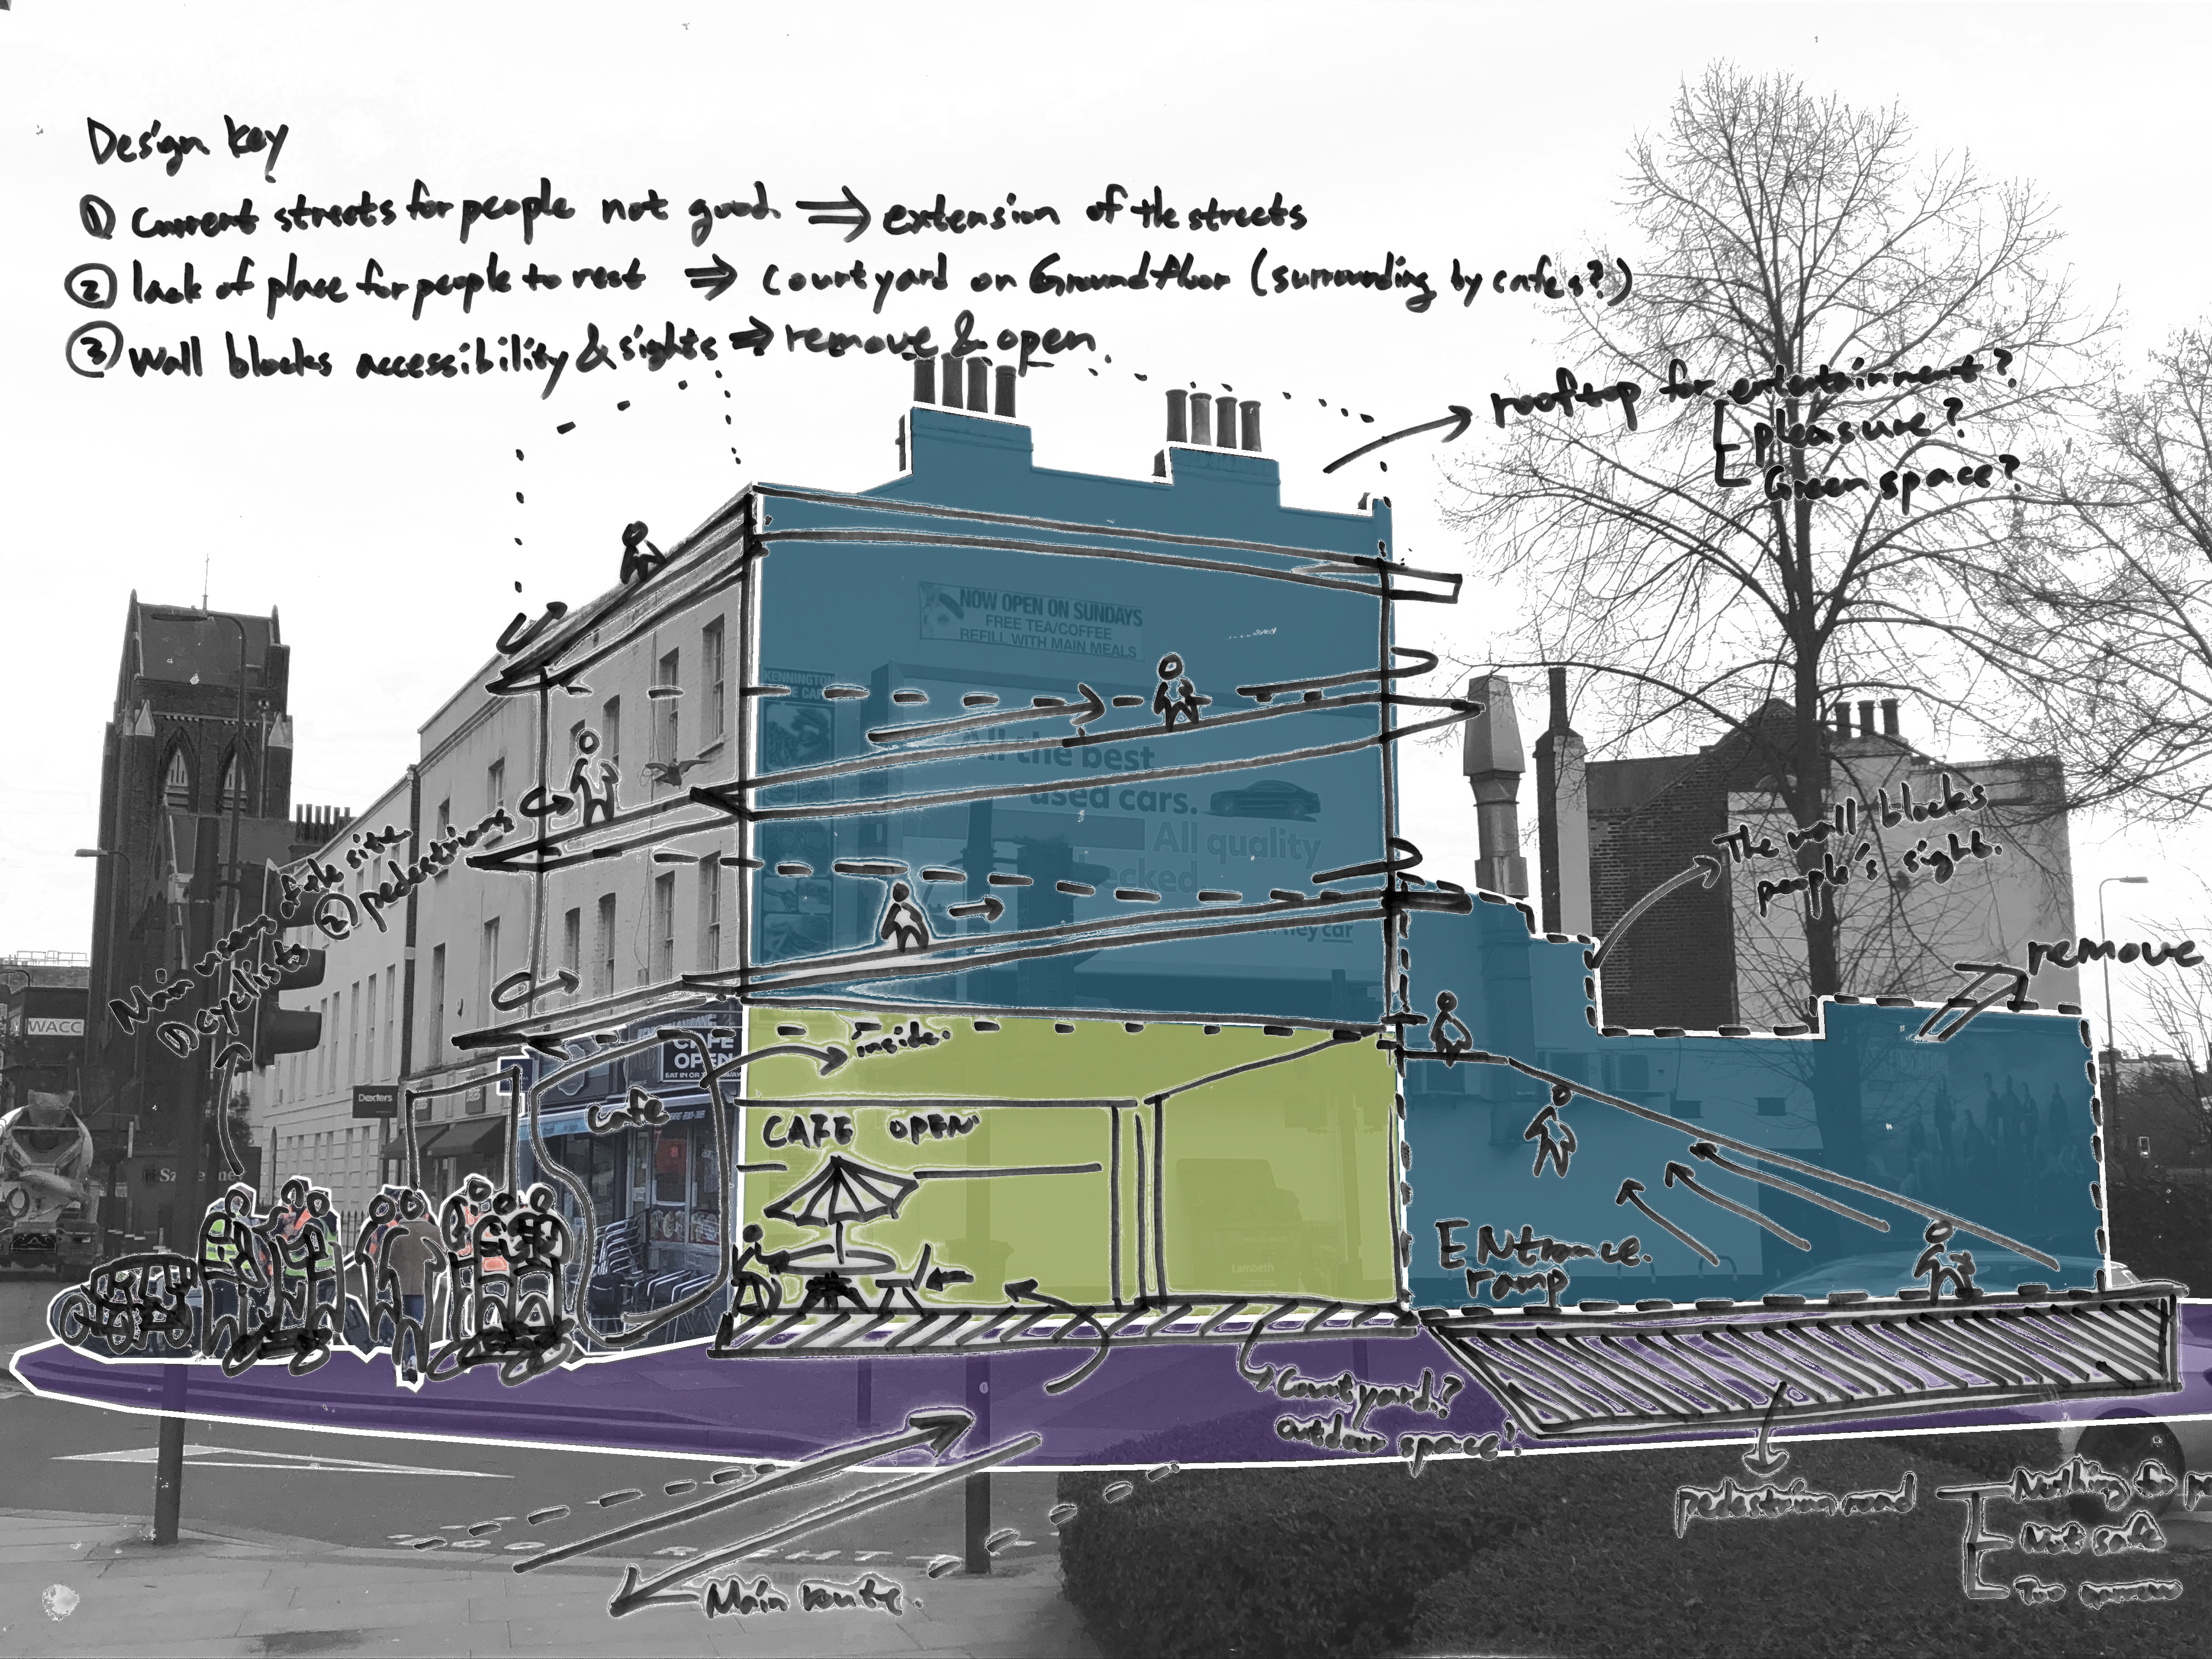 Design key
① Current streets for people not good ⇒ extension of the streets
② lack of place for people to rest ⇒ Courtyard on Ground floor (surrounding by cafes?)
③ Wall blocks accessibility & sights ⇒ remove & open.
rooftop for entertainment?
pleasure?
Green space?
NOW OPEN ON SUNDAYS
FREE TEA/COFFEE
REFILL WITH MAIN MEALS
KENNINGTON
All the best
used cars.
All quality
ecked
car
The wall blocks
people's sight.
remove
Main users of the site
① cyclists ② pedestrians
WACC
Dexters
CAFE
OPEN
inside.
cafe
CAFE OPEN
Lambeth
ENtrance.
ramp
Courtyard?
outdoor space?
pedestrian road
Nothing for
Not safe
Too narrow
Main route.